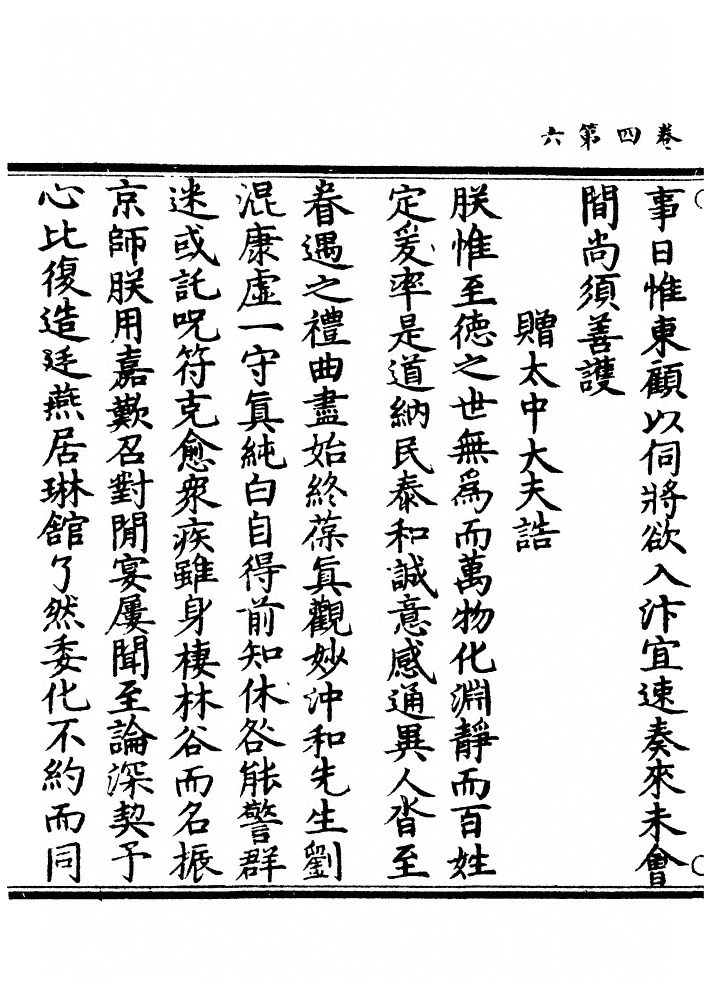 卷四第六
事日惟東顧以伺將欲入汴宜速奏來未會
間尚須善護
贈太中大夫誥
朕惟至德之世無為而萬物化淵靜而百姓
定爰率是道納民泰和誠意感通異人沓至
眷遇之禮曲盡始終葆真觀妙沖和先生劉
混康虛一守真純白自得前知休咎能警群
迷或託呪符克愈衆疾雖身棲林谷而名振
京師朕用嘉歎召對閒宴屢聞至論深契予
心比復造廷燕居琳館了然委化不約而同